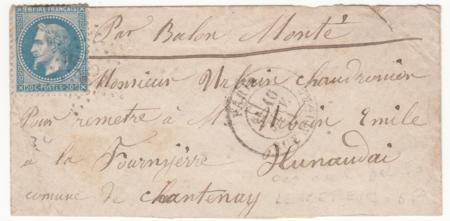 EMPIRE FRANÇAIS
20 C POSTES 20 C
Par Balon Monté
Monsieur Urbain chaudronier
Pour remetre à M Urbain Emile
à la Fournyèrre Hunaudai
comune de chantenay
PARIS